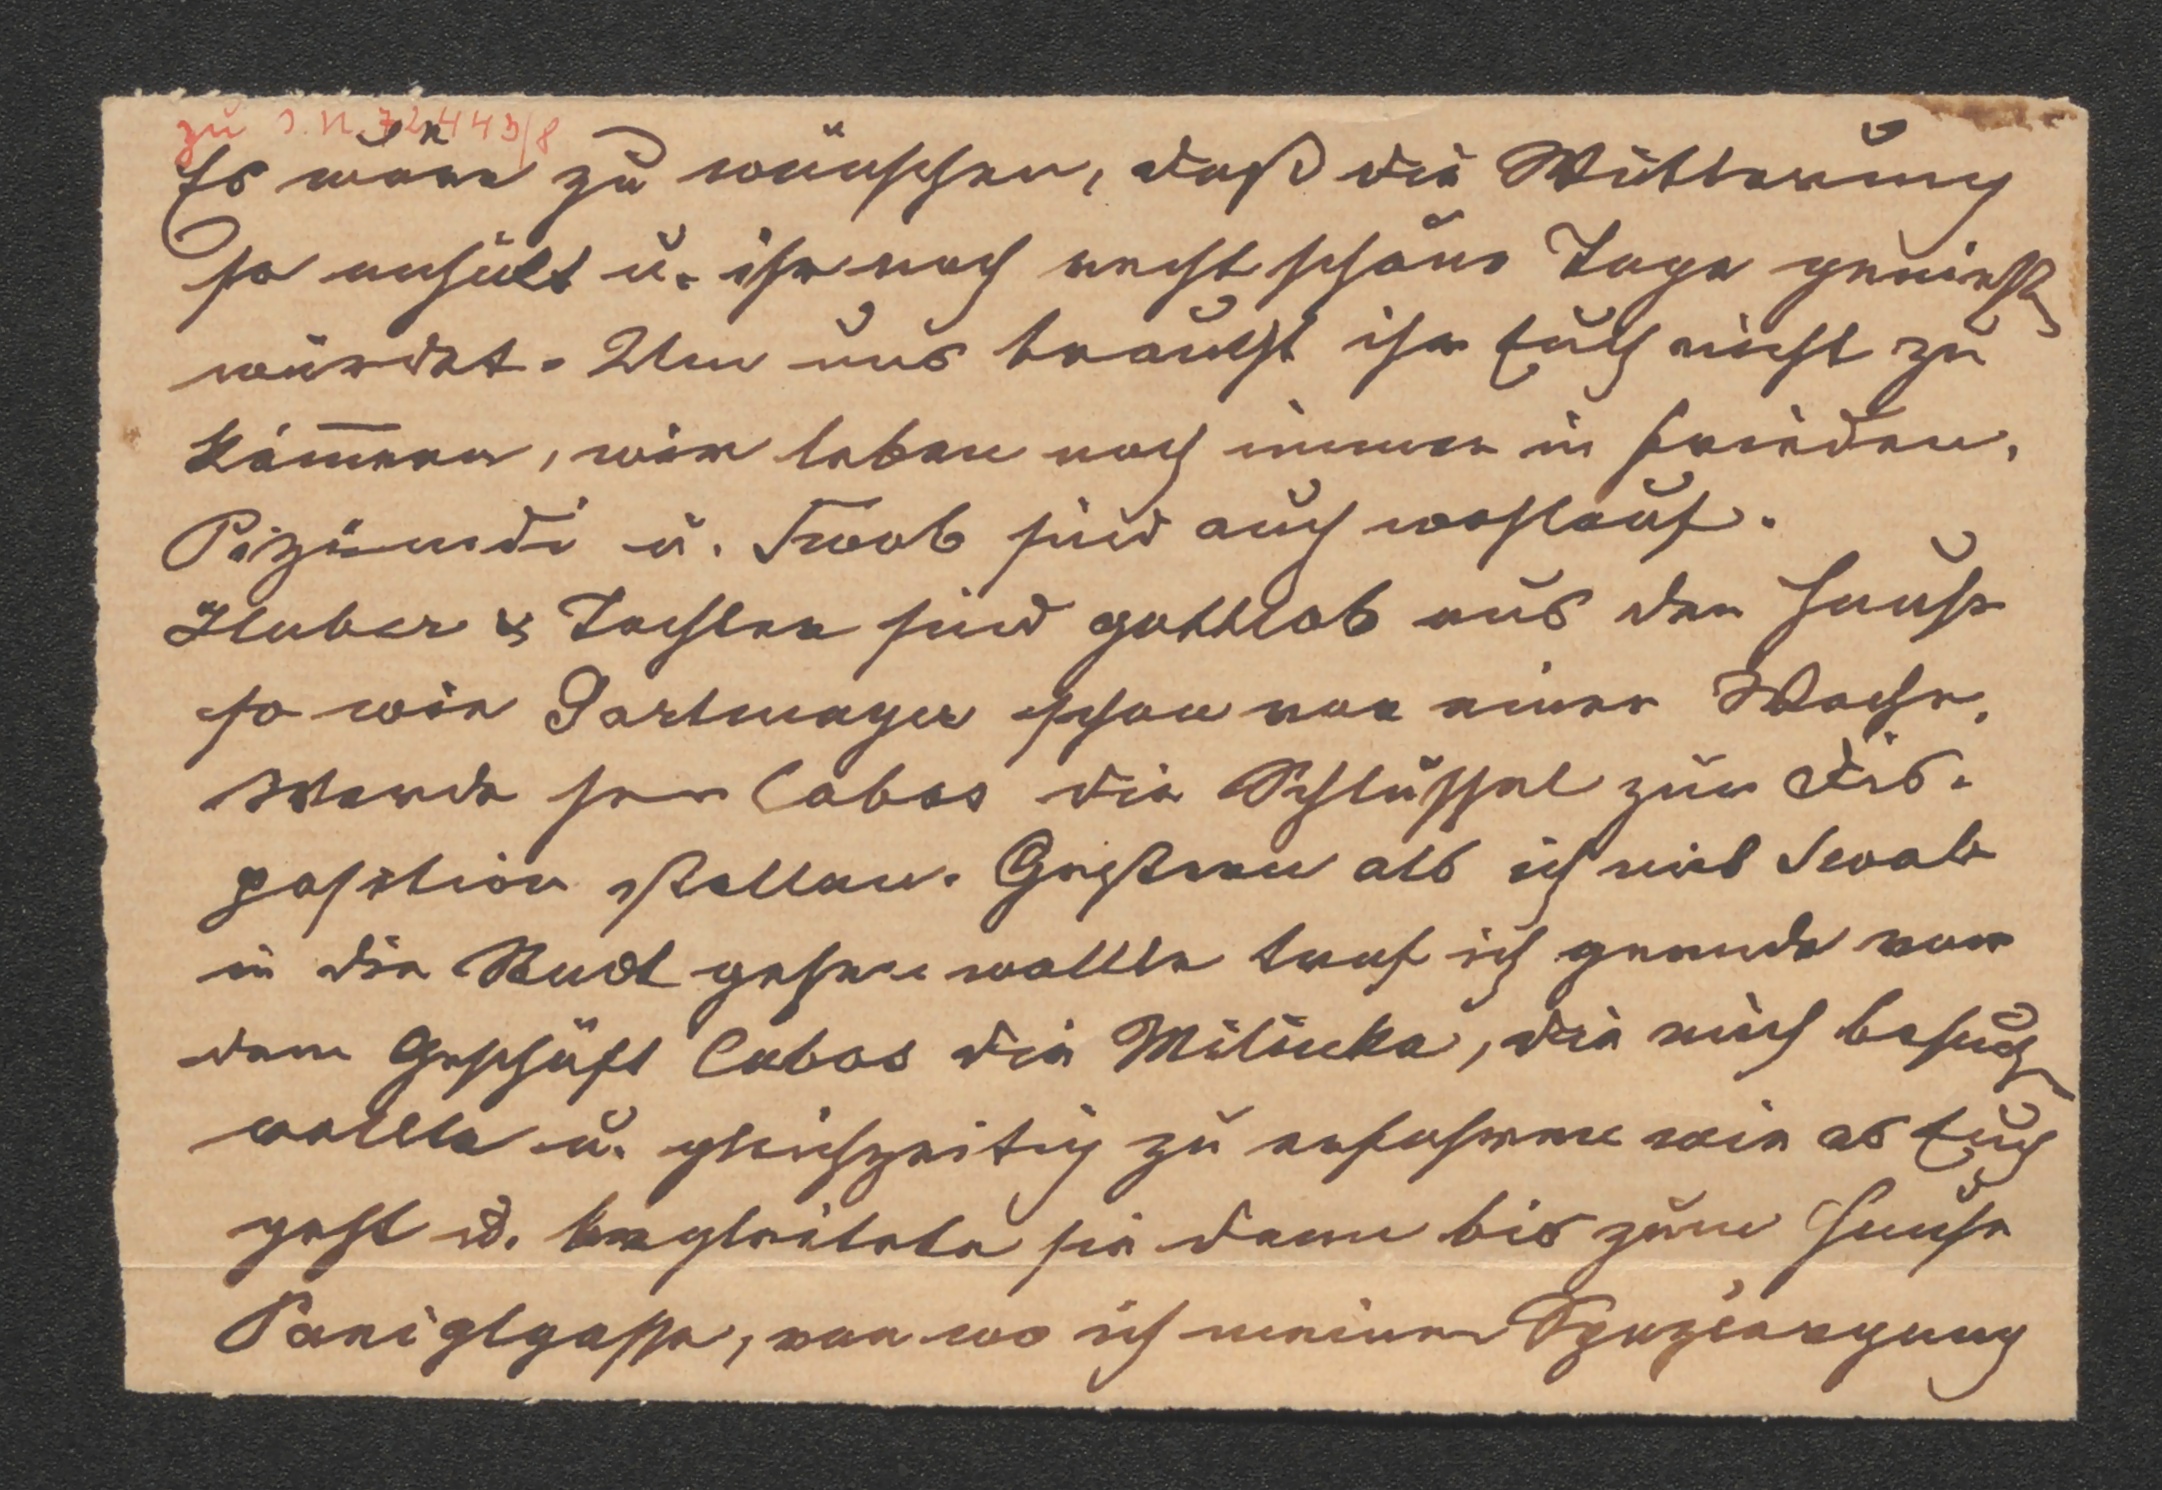 zu I.N. 72443/8
Es wäre zu wünschen, daß die Witterung
so anhält u. ihr noch recht schöne Tage genießen
würdet. Um uns braucht ihr Euch nicht zu
kümmern, wir leben noch immer in Frieden,
u. Swob sind auch wohlauf.
Huber & Tochter sind gottlob aus den Hause
so wie Partmayer schon vor einer Woche.
Werde Herr Cabos die Schlüssel zur Dis-
position stellen. Gestern als ich mit Swob
in die Stadt gehen wollte traf ich gerade vor
dem Geschäft Cabos die Milinka, die mich besuchen
wollte u. gleichzeitig zu erfahren wie es Euch
geht u. begleitete sie dann bis zum Hause
Paniglgasse, von wo ich meinen Spaziergang